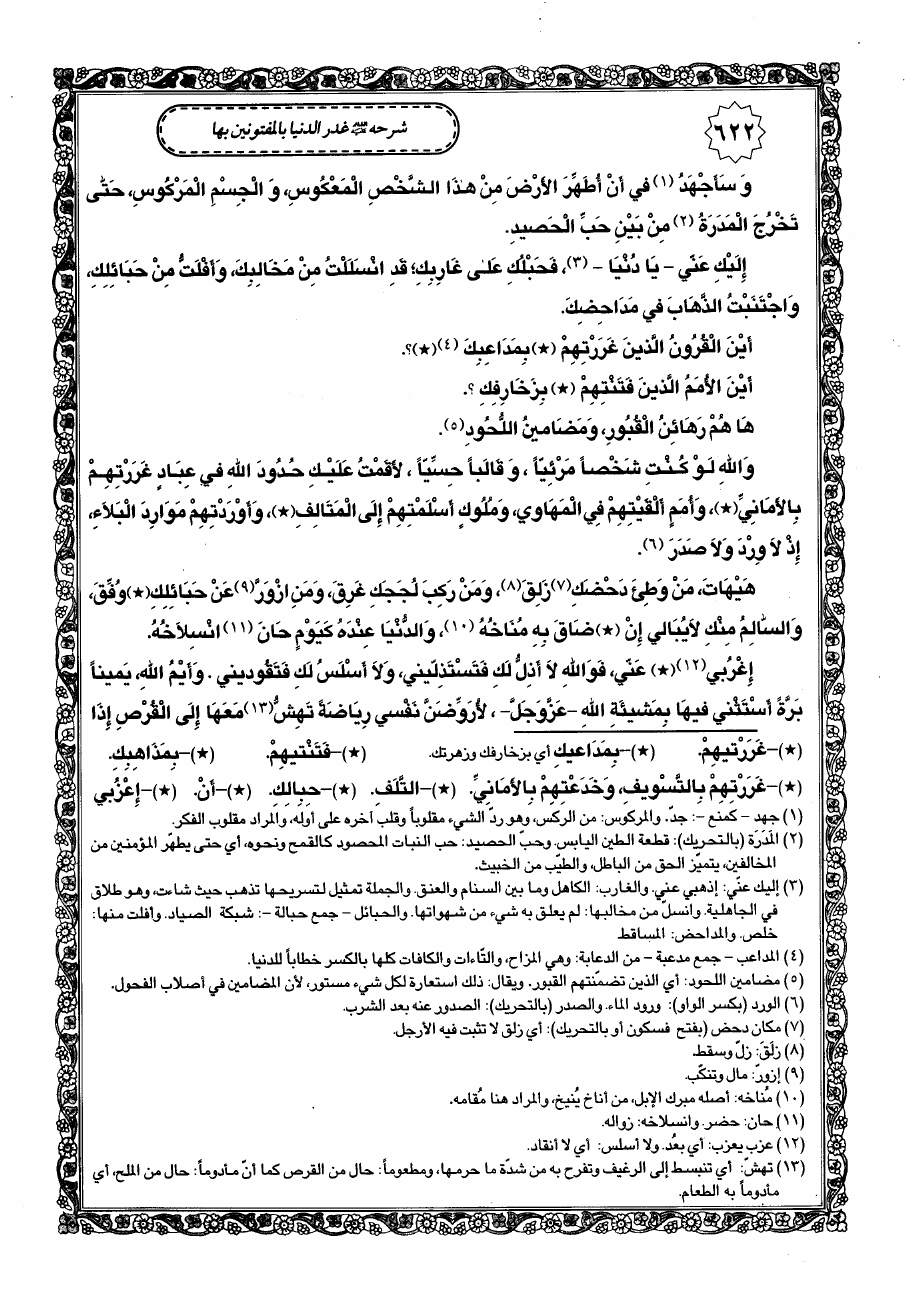 ٦٢٢
شرحه ﷺ غدر الدنيا بالمفتونين بها
وَ سَأَجْهَدُ (١) في أَنْ أُطَهِّرَ الأَرْضَ مِنْ هٰذَا الشَّخْصِ الْمَعْكُوسِ، وَ الْجِسْمِ الْمَرْكُوسِ، حَتّٰى
تَخْرُجَ الْمَدَرَةُ (٢) مِنْ بَيْنِ حَبِّ الْحَصيدِ.
إِلَيْكِ عَنّي - يَا دُنْيَا - (٣)، فَحَبْلُكِ عَلىٰ غَارِبِكِ؛ قَدِ انْسَلَلْتُ مِنْ مَخَالِبِكِ، وَأَفْلَتُّ مِنْ حَبَائِلِكِ،
وَاجْتَنَبْتُ الذَّهَابَ في مَدَاحِضِكِ.
أَيْنَ الْقُرُونُ الَّذينَ غَرَرْتِهِمْ (★) بِمَدَاعِبِكِ (٤)(★)؟.
أَيْنَ الأُمَمُ الَّذينَ فَتَنْتِهِمْ (★) بِزَخَارِفِكِ ؟.
هَا هُمْ رَهَائِنُ الْقُبُورِ، وَمَضَامينُ اللُّحُودِ (٥).
وَاللهِ لَوْ كُنْتِ شَخْصاً مَرْئِيّاً ، وَ قَالَباً حِسِّيّاً ، لأَقَمْتُ عَلَيْكِ حُدُودَ اللهِ في عِبَادٍ غَرَرْتِهِمْ
بِالأَمَانِيِّ(★)، وَأُمَمٍ أَلْقَيْتِهِمْ فِي الْمَهَاوي، وَمُلُوكٍ أَسْلَمْتِهِمْ إِلَى الْمَتَالِفِ(★)، وَأَوْرَدْتِهِمْ مَوَارِدَ الْبَلاَءِ،
إِذْ لاَ وِرْدَ وَلاَ صَدَرَ (٦).
هَيْهَاتَ، مَنْ وَطِئَ دَحْضَكِ(٧) زَلِقَ (٨)، وَمَنْ رَكِبَ لُجَجَكِ غَرِقَ، وَمَنِ ازْوَرَّ(٩) عَنْ حَبَائِلِكِ(★) وُفِّقَ،
وَالسَّالِمُ مِنْكِ لاَيُبَالي إِنْ (★) ضَاقَ بِهِ مُنَاخُهُ (١٠)، وَالدُّنْيَا عِنْدَهُ كَيَوْمٍ حَانَ (١١) انْسِلاَخُهُ.
إِعْزُبي(١٢)(★) عَنّي، فَوَاللهِ لاَ أَذِلُّ لَكِ فَتَسْتَذِلّيني، وَلاَ أَسْلَسُ لَكِ فَتَقُوديني . وَأَيْمُ اللهِ، يَميناً
بَرَّةً أَسْتَثْني فيهَا بِمَشيئَةِ اللهِ -عَزَّوَجَلَّ- ، لأَرَوِّضَنَّ نَفْسي رِيَاضَةً تَهِشُّ(١٣) مَعَهَا إِلَى الْقُرْصِ إِذَا
(★)-غَرَرْتيهِمْ. (★)-بِمَدَاعيكِ أي بزخارفك وزهرتك. (★)-فَتَنْتيهِمْ. (★)-بِمَذَاهِبِكِ.
(★)-غَرَرْتِهِمْ بِالتَّسْويفِ، وَخَدَعْتِهِمْ بِالأَمَانِيِّ. (★)-التَّلَفِ. (★)-حِبَالِكِ. (★)-أَنْ. (★)-إِغْرُبي
(١) جهد - كمنع -: جدّ. والمركوس: من الركس، وهو ردّ الشيء مقلوباً وقلب آخره على أوله، والمراد مقلوب الفكر.
(٢) المَدَرَة (بالتحريك): قطعة الطين اليابس. وحبّ الحصيد: حب النبات المحصود كالقمح ونحوه، أي حتى يطهّر المؤمنين من
المخالفين، يتميّز الحق من الباطل، والطيّب من الخبيث.
(٣) إليك عنّي: إذهبي عني. والغارب: الكاهل وما بين السنام والعنق. والجملة تمثيل لتسريحها تذهب حيث شاءت، وهو طلاق
في الجاهلية. وانسلّ من مخالبها: لم يعلق به شيء من شهواتها. والحبائل - جمع حبالة -: شبكة الصياد. وافلت منها:
خلص. والمداحض: المساقط
(٤) المداعب - جمع مدعبة - من الدعابة: وهي المزاح، والتّاءات والكافات كلها بالكسر خطاباً للدنيا.
(٥) مضامين اللحود: أي الذين تضمنّتهم القبور. ويقال: ذلك استعارة لكل شيء مستور، لأن المضامين في أصلاب الفحول.
(٦) الورد (بكسر الواو): ورود الماء. والصدر (بالتحريك): الصدور عنه بعد الشرب.
(٧) مكان دحض (بفتح فسكون أو بالتحريك): أي زلق لا تثبت فيه الأرجل.
(٨) زلَقَ: زلّ وسقط.
(٩) إزورّ: مال وتنكّب.
(١٠) مُناخه: أصله مبرك الإبل، من أناخ يُنيخ، والمراد هنا مُقامه.
(١١) حان: حضر. وانسلاخه: زواله.
(١٢) عزب يعزب: أي بعُد. ولا أسلس: أي لا أنقاد.
(١٣) تهشّ: أي تنبسط إلى الرغيف وتفرح به من شدّة ما حرمها، ومطعوماً: حال من القرص كما أنّ مأدوماً: حال من الملح، أي
مأدوماً به الطعام.